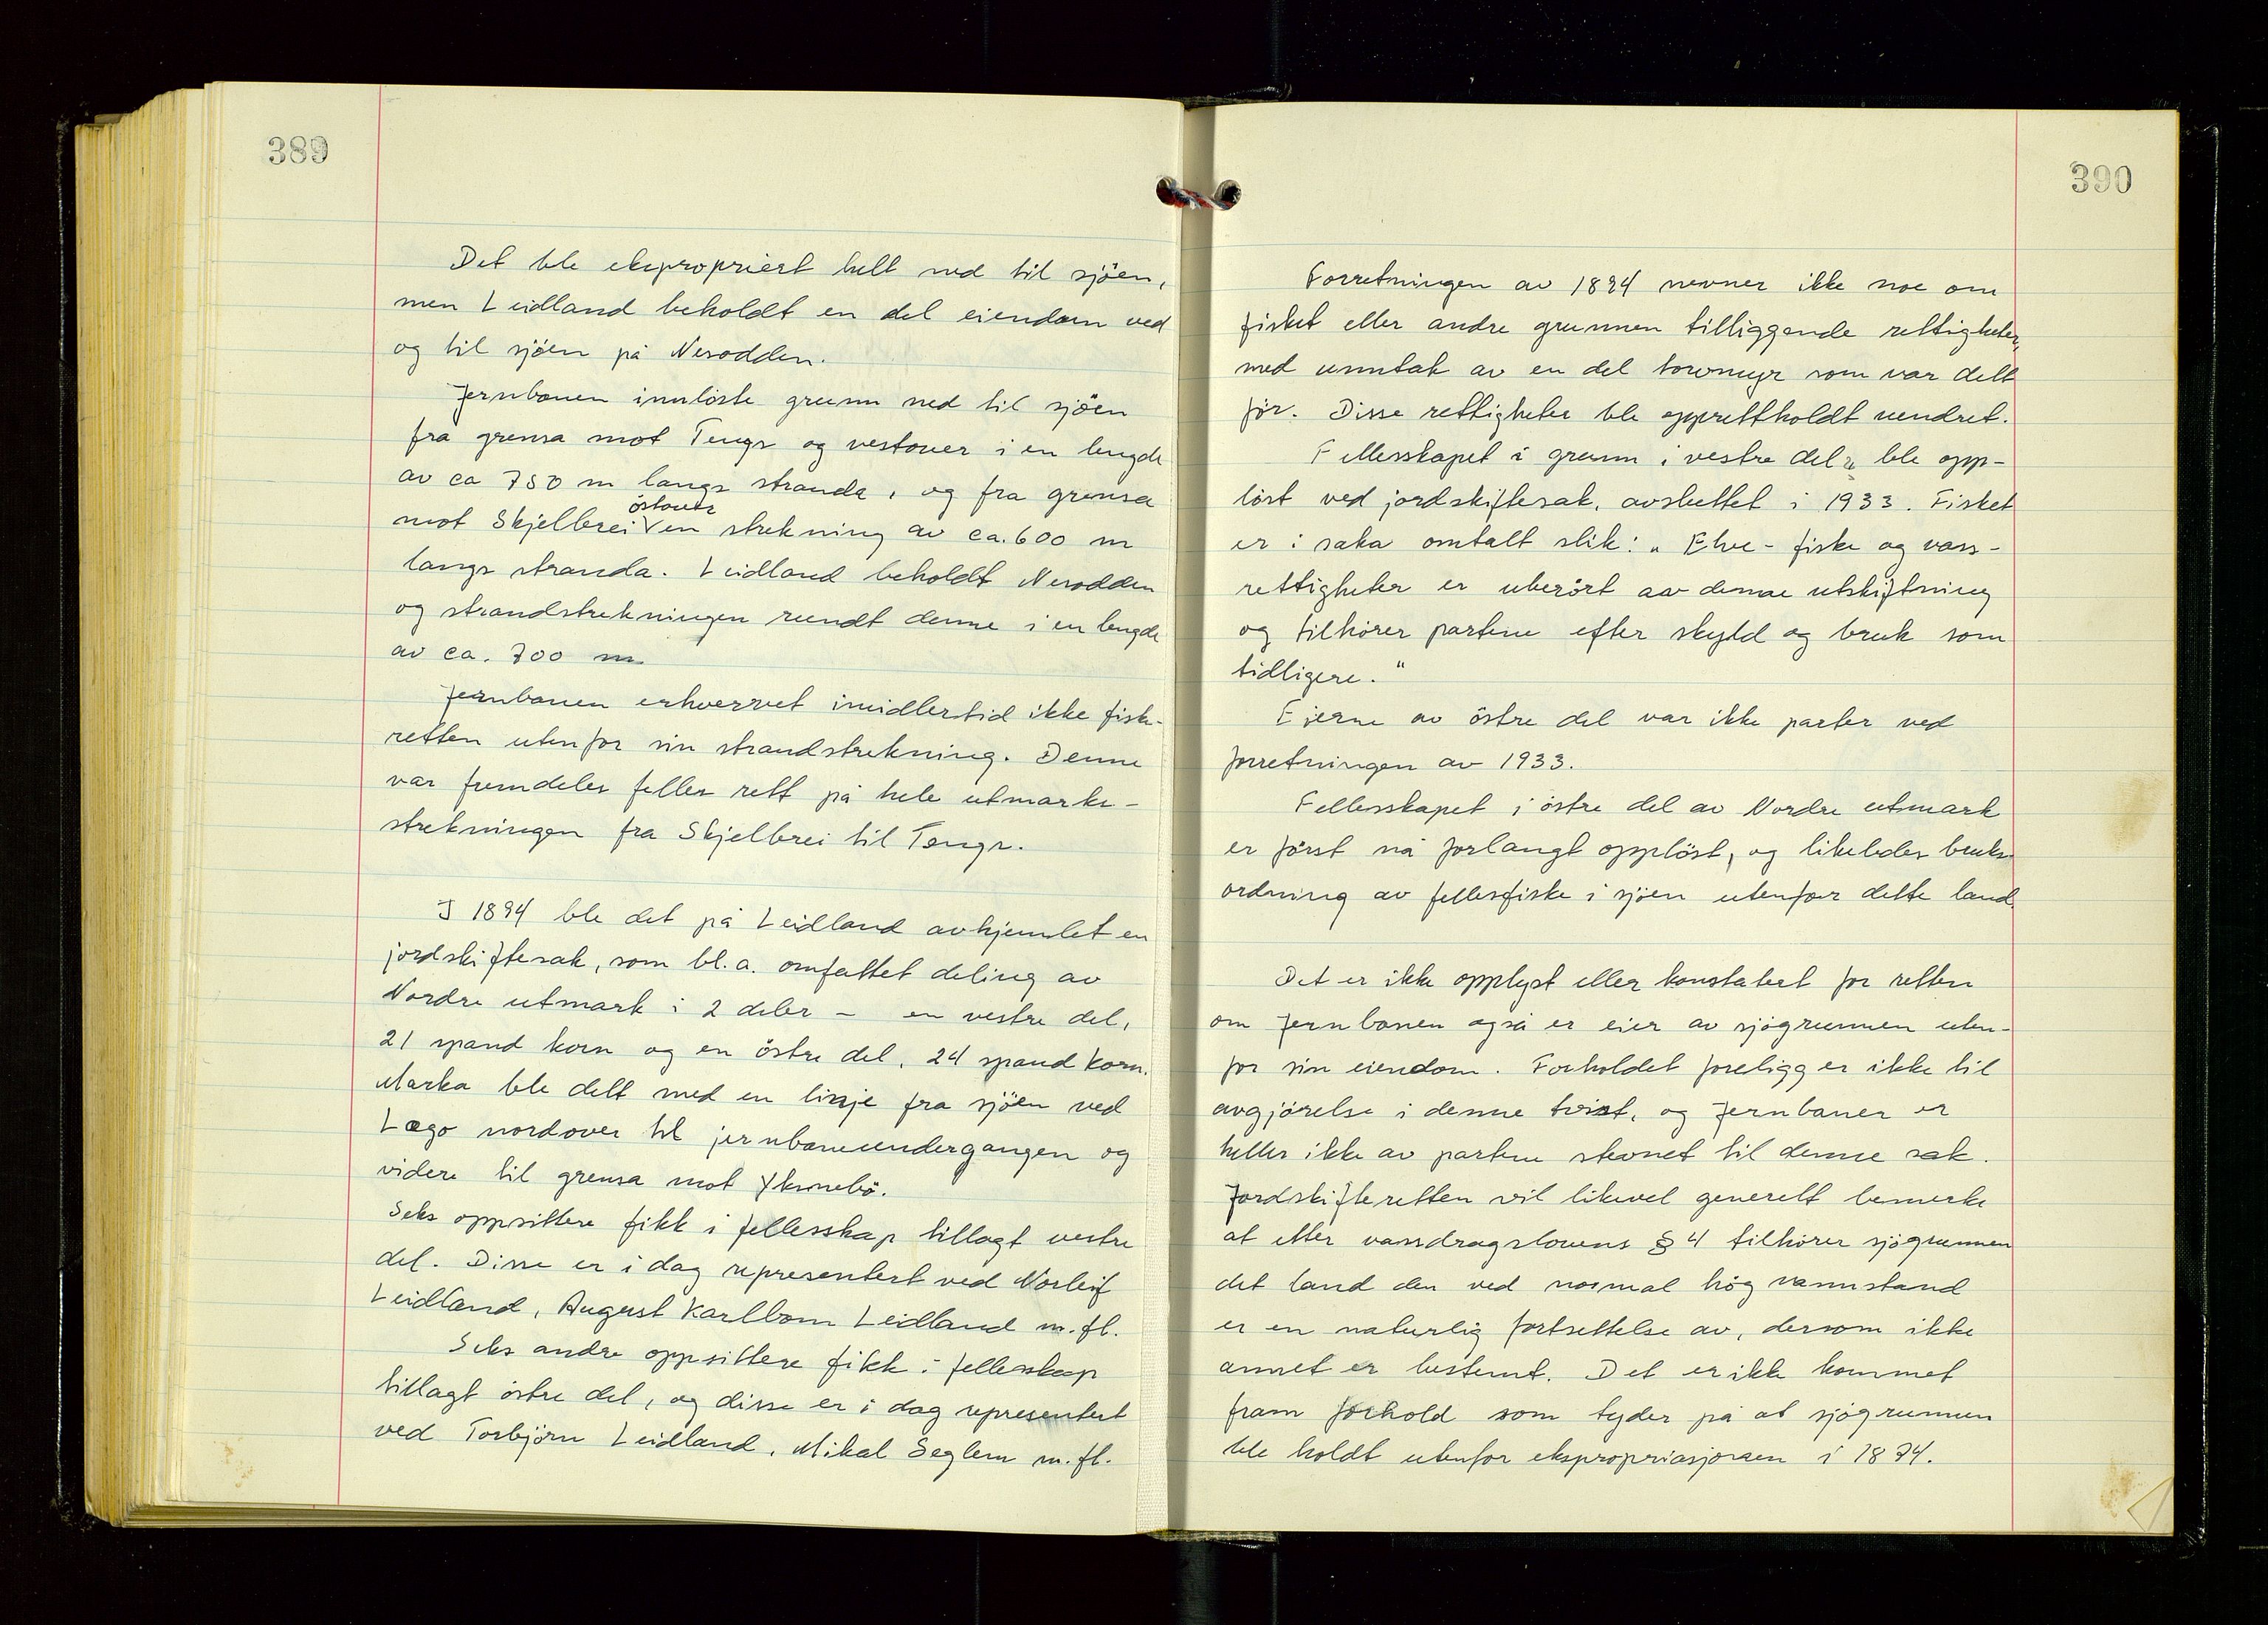 389
Det ble ekspropriert helt ned til sjöen,
men Leidland beholdt en del eiendom ved
og til sjöen på Nesodden.
Jernbanen innlöste grunn ned til sjöen
fra grensa mot Tengs og vestover i en lengde
av ca 750 m langs stranda, og fra grensa
östover
mot Skjelbrei V en strekning av ca. 600 m
langs stranda. Leidland beholdt Nesodden
og strandstrekningen rundt denne i en lengde
av ca. 700 m
Jernbanen erhvervet imidlertid ikke fiske-
retten utenfor sin strandstrekning. Denne
var fremdeles felles rett på hele utmarks-
strekningen fra Skjelbrei til Tengs.
I 1894 ble det på Leidland avhjemlet en
jordskiftesak, som bl.a. omfattet deling av
Nordre utmark i 2 deler - en vestre del,
21 spand korn og en östre del, 24 spand korn.
Marka ble delt med en linje fra sjöen ved
Lægo nordover til jernbaneundergangen og
videre til grensa mot Yksnebö.
Seks oppsittere fikk i fellesskap tillagt vestre
del. Disse er i dag representert ved Norleif
Leidland, August Karlbom Leidland m.fl.
Seks andre oppsittere fikk i fellesskap
tillagt östre del, og disse er i dag representert
ved Torbjörn Leidland, Mikal Seglem m.fl.
390
Forretningen av 1894 nevner ikke noe om
fisket eller andre grunnen tilliggende rettigheter,
med unntak av en del torvmyr som var delt
för. Disse rettigheter ble opprettholdt uendret.
Fellesskapet i grunn i vestre del ble opp-
löst ved jordskiftesak, avsluttet i 1933. Fisket
er i saka omtalt slik: „Elve- fiske og vass-
rettigheter er uberört av denne utskiftning
og tilhörer partene efter skyld og bruk som
tidligere."
Eierne av östre del var ikke parter ved
forretningen av 1933.
Fellesskapet i östre del av Nordre utmark
er först nå forlangt opplöst, og likeledes bruks-
ordning av fellesfiske i sjöen utenfor dette land.
Det er ikke opplyst eller konstatert for retten
om Jernbanen også er eier av sjögrunnen uten-
for sin eiendom. Forholdet foreligger ikke til
avgjörelse i denne tvist, og Jernbanen er
heller ikke av partene stevnet til denne sak.
Jordskifteretten vil likevel generelt bemerke
at etter vassdragslovens § 4 tilhörer sjögrunnen
det land den ved normal hög vannstand
er en naturlig fortsettelse av, dersom ikke
annet er bestemt. Det er ikke kommet
fram forhold som tyder på at sjögrunnen
ble holdt utenfor ekspropriasjonen i 1874.